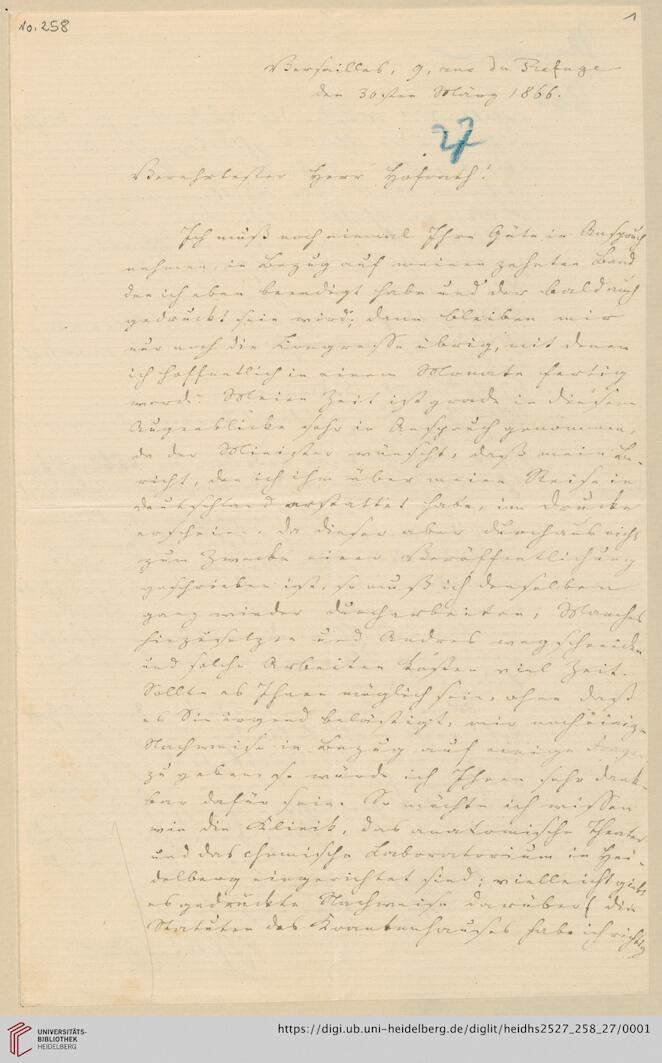 No. 258
1
Versailles, 9, rue du Refuge
den 30sten März 1866.
27
Verehrtester Herr Hofrath!
Ich muß noch einmal Ihre Güte in Anspruch
nehmen, in Bezug auf meinen zehnten Band
den ich eben beendigt habe und der bald auch
gedruckt sein wird; dann bleiben mir
nur noch die Kongresse übrig, mit denen
ich hoffentlich in einem Monate fertig
werde. Meine Zeit ist grade in diesem
Augenblicke sehr in Anspruch genommen,
da der Minister wünscht, daß mein Be-
richt, den ich ihm über meine Reise in
Deutschland erstattet habe, im Drucke
erscheine. Da dieser aber durchaus nicht
zum Zwecke einer Veröffentlichung
geschrieben ist, so muß ich denselben
ganz wieder durcharbeiten, Manches
hinzusetzen und Andres wegschneiden
und solche Arbeiten kosten viel Zeit.
Sollte es Ihnen möglich sein, ohne daß
es Sie irgend belästigt, mir noch einige
Nachweise in Bezug auf einige Fragen
zu geben, so würde ich Ihnen sehr dank-
bar dafür sein. So möchte ich wissen
wie die Klinik, das anatomische Theater
und das chemische Laboratorium in Hei-
delberg eingerichtet sind; vielleicht giebt
es gedruckte Nachweise darüber (die
Statuten des Krankenhauses habe ich richtig
UNIVERSITÄTS-
BIBLIOTHEK
HEIDELBERG
https://digi.ub.uni-heidelberg.de/diglit/heidhs2527_258_27/0001